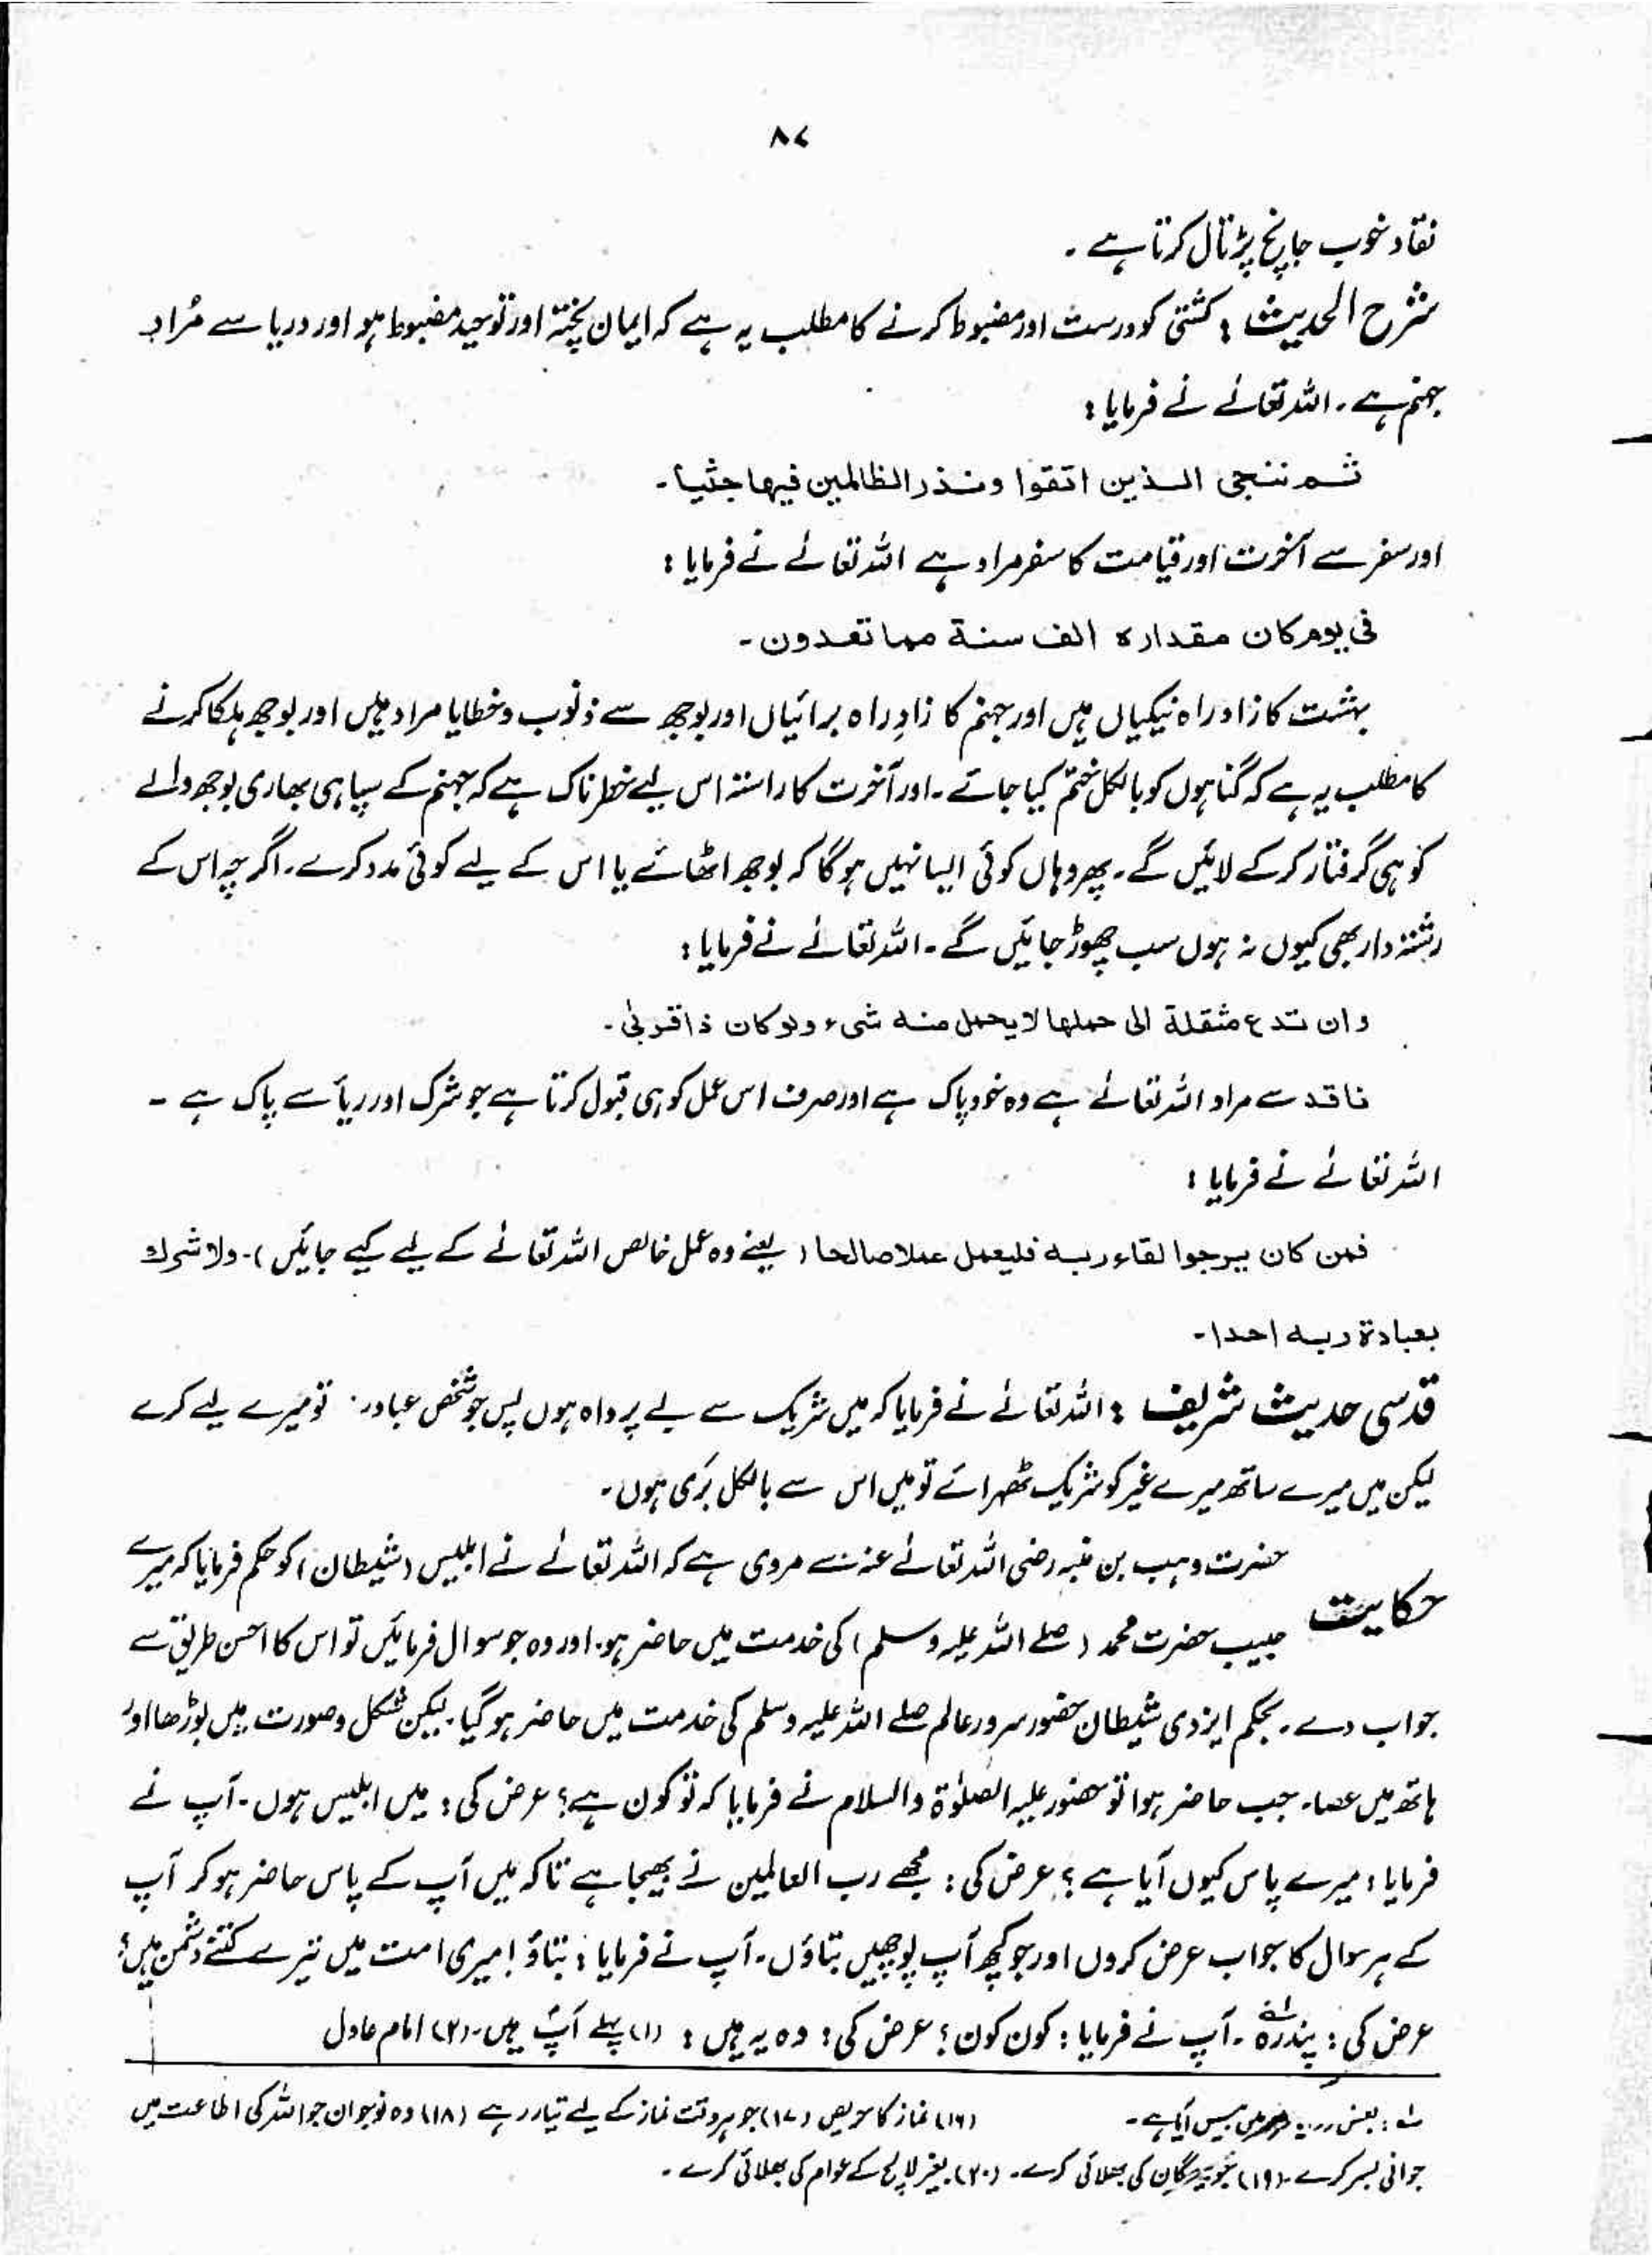 ۸۷
نقاد خوب جانچ پڑتال کرتا ہے۔
شرح الحدیث : کشتی کو درست اور مضبوط کرنے کا مطلب یہ ہے کہ ایمان پختہ اور توحید مضبوط ہو اور دریا سے مُراد
جہنم ہے۔ اللہ تعالےٰ نے فرمایا :
ثم ننجی الذین اتقوا ونذر الظالمین فیہا جثیا۔
اور سفر سے آخرت اور قیامت کا سفر مراد ہے اللہ تعالےٰ نے فرمایا :
فی یوم کان مقدارہ الف سنة مما تعدون۔
بہشت کا زاد راہ نیکیاں ہیں اور جہنم کا زادِ راہ برائیاں اور بوجھ سے ذنوب و خطایا مراد ہیں اور بوجھ ہلکا کرنے
کا مطلب یہ ہے کہ گناہوں کو بالکل ختم کیا جائے۔ اور آخرت کا راستہ اس لیے خطرناک ہے کہ جہنم کے سپاہی بھاری بوجھ والے
کو ہی گرفتار کر کے لائیں گے۔ پھر وہاں کوئی ایسا نہیں ہوگا کہ بوجھ اٹھائے یا اس کے لیے کوئی مدد کرے۔ اگرچہ اس کے
رشتہ دار بھی کیوں نہ ہوں سب چھوڑ جائیں گے۔ اللہ تعالےٰ نے فرمایا :
وان تدع مثقلة الی حملہا لا یحمل منہ شیء ولو کان ذا قربیٰ۔
ناقد سے مراد اللہ تعالےٰ ہے وہ خود پاک ہے اور صرف اس عمل کو ہی قبول کرتا ہے جو شرک اور ریأ سے پاک ہے ۔
اللہ تعالےٰ نے فرمایا :
فمن کان یرجوا لقاء ربہ فلیعمل عملا صالحا (یعنے وہ عمل خالص اللہ تعالےٰ کے لیے کیے جائیں)۔ ولا شرك
بعبادة ربہ احدا۔
قدسی حدیث شریف : اللہ تعالےٰ نے فرمایا کہ میں شریک سے بے پرواہ ہوں پس جو شخص عبادت تو میرے لیے کرے
لیکن میں میرے ساتھ میرے غیر کو شریک ٹھہرائے تو میں اس سے بالکل بَری ہوں۔
حضرت وہب بن منبہ رضی اللہ تعالےٰ عنہ سے مروی ہے کہ اللہ تعالےٰ نے ابلیس (شیطان) کو حکم فرمایا کہ میرے
حکایت
حبیب حضرت محمد (صلے اللہ علیہ وسلم) کی خدمت میں حاضر ہو۔ اور وہ جو سوال فرمائیں تو اس کا احسن طریق سے
جواب دے۔ بحکم ایزدی شیطان حضور سرور عالم صلے اللہ علیہ وسلم کی خدمت میں حاضر ہو گیا۔ لیکن شکل و صورت میں بوڑھا اور
ہاتھ میں عصا۔ جب حاضر ہوا تو حضور علیہ الصلوٰة والسلام نے فرمایا کہ تو کون ہے؟ عرض کی : میں ابلیس ہوں۔ آپ نے
فرمایا : میرے پاس کیوں آیا ہے؟ عرض کی : مجھے رب العالمین نے بھیجا ہے تاکہ میں آپ کے پاس حاضر ہو کر آپ
کے ہر سوال کا جواب عرض کروں اور جو کچھ آپ پوچھیں بتاؤں۔ آپ نے فرمایا : بتاؤ! میری امت میں تیرے کتنے دشمن ہیں؟
عرض کی : پندرہ لہ ۔ آپ نے فرمایا : کون کون؟ عرض کی : وہ یہ ہیں : (۱) پہلے آپؐ ہیں۔ (۲) امام عادل
لہ : بعض میں بیس آیا ہے۔ (۱۶) نماز کا حریص (۱۷) جو ہر وقت نماز کے لیے تیار رہے (۱۸) وہ نوجوان جو اللہ کی اطاعت میں
جوانی بسر کرے۔ (۱۹) کی بھلائی کرے۔ (۲۰) بغیر لالچ کے عوام کی بھلائی کرے۔